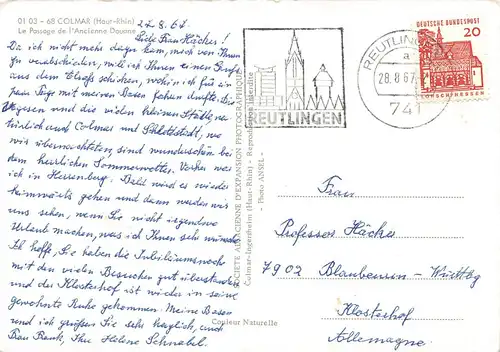 01 03 - 68 COLMAR (Haut-Rhin)
Le Passage de l'Ancienne Douane
27.8.67.
Liebe Frau Häcker!
Da ich nicht mehr dazu kam, mich von Ihnen
zu verabschieden, will ich Ihnen einen Gruß
aus dem Elsaß schicken, wohin ich für ein
paar Tage mit meinen Basen fahren durfte. Die
Vogesen und die vielen kleinen Städte, na-
türlich auch Colmar und Schlettstadt, wo
wir übernachteten, sind wunderschön bei
dem herrlichen Sommerwetter. Vorher war
ich in Herrenberg. Bald wird es wieder
heimwärts gehen und dann werden wir
uns sehen, wenn Sie nicht irgendwo
Urlaub machen, was ich Ihnen sehr wünsche.
Ich hoffe, Sie haben die Jubiläumswoche
mit den vielen Besuchen gut überstanden
und der Klosterhof ist wieder in seine
gewohnte Ruhe gekommen. Meine Basen
und ich grüßen Sie sehr herzlich, auch
Frau Frank, Ihre Helene Schnabel.
SOCIÉTÉ ALSACIENNE D'EXPANSION PHOTOGRAPHIQUE
Colmar-Ingersheim (Haut-Rhin) - Reproduction interdite
- Photo ANSEL -
Couleur Naturelle
REUTLINGEN
REUTLINGEN
a
28.8.67
741
DEUTSCHE BUNDESPOST
20
LORSCH/HESSEN
Frau
Professor Häcker
7902 Blaubeuren - Württbg
Klosterhof
Allemagne